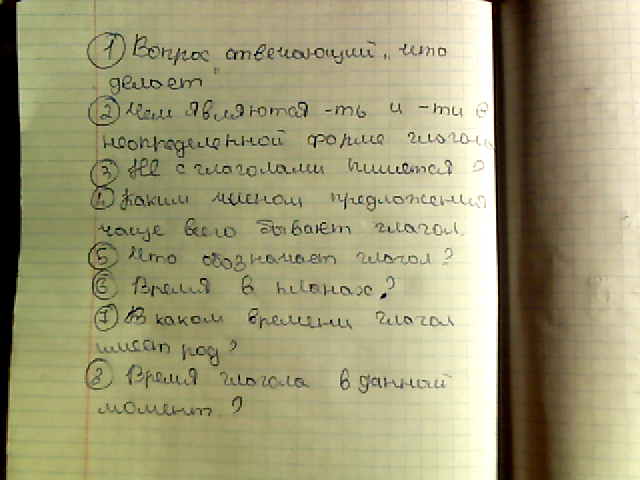 ① Вопрос отвечающий „что
делает"
② Чем являются -ть и -ти в
неопределенной форме глагола
③ Не с глаголами пишется?
④ Каким членом предложения
чаще всего бывает глагол.
⑤ Что обозначает глагол?
⑥ Время в планах?
⑦ В каком времени глагол
имеет род?
⑧ Время глагола в данный
момент?